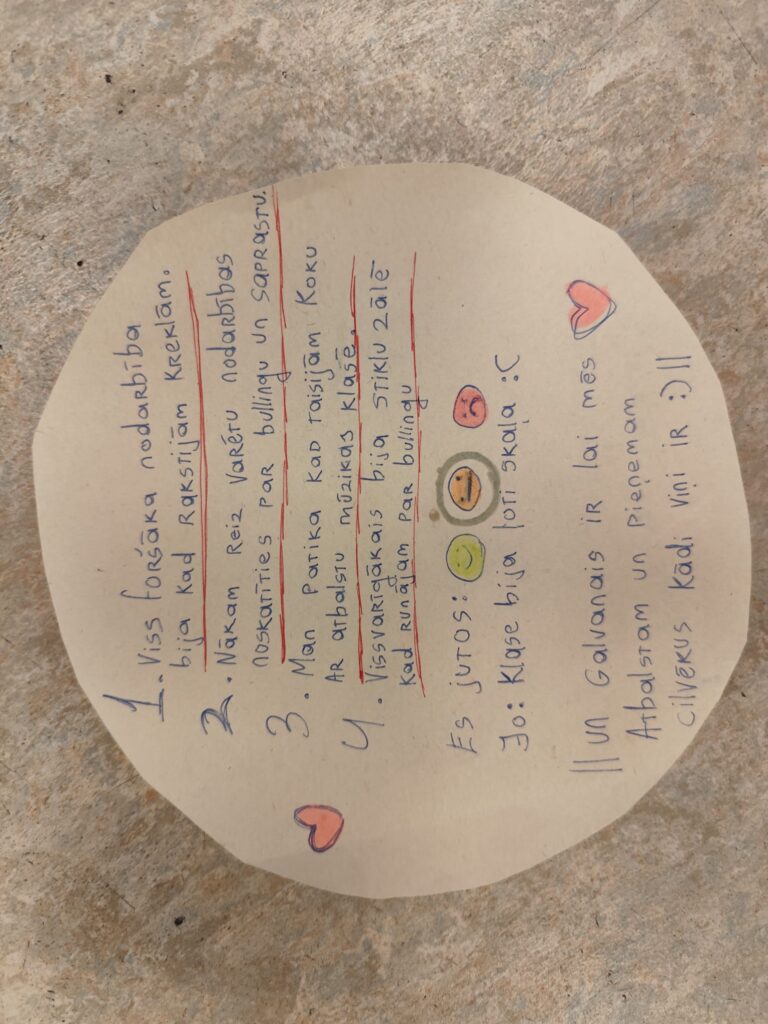 1. Viss foršāka nodarbība
bija kad rakstijām kreklām.
2. Nākam reiz varētu nodarbības
noskatīties par bullingu un saprastu.
3. Man patika kad taisijām koku
ar atbalstu mūzikas klasē.
4. Vissvarīgākais bija stiklu zālē
kad runājam par bullingu
Es jutos:
Jo: Klase bija ļoti skaļa :C
|| un Galvanais ir lai mēs
Atbalstam un pieņemam
cilvēkus kādi viņi ir :) ||